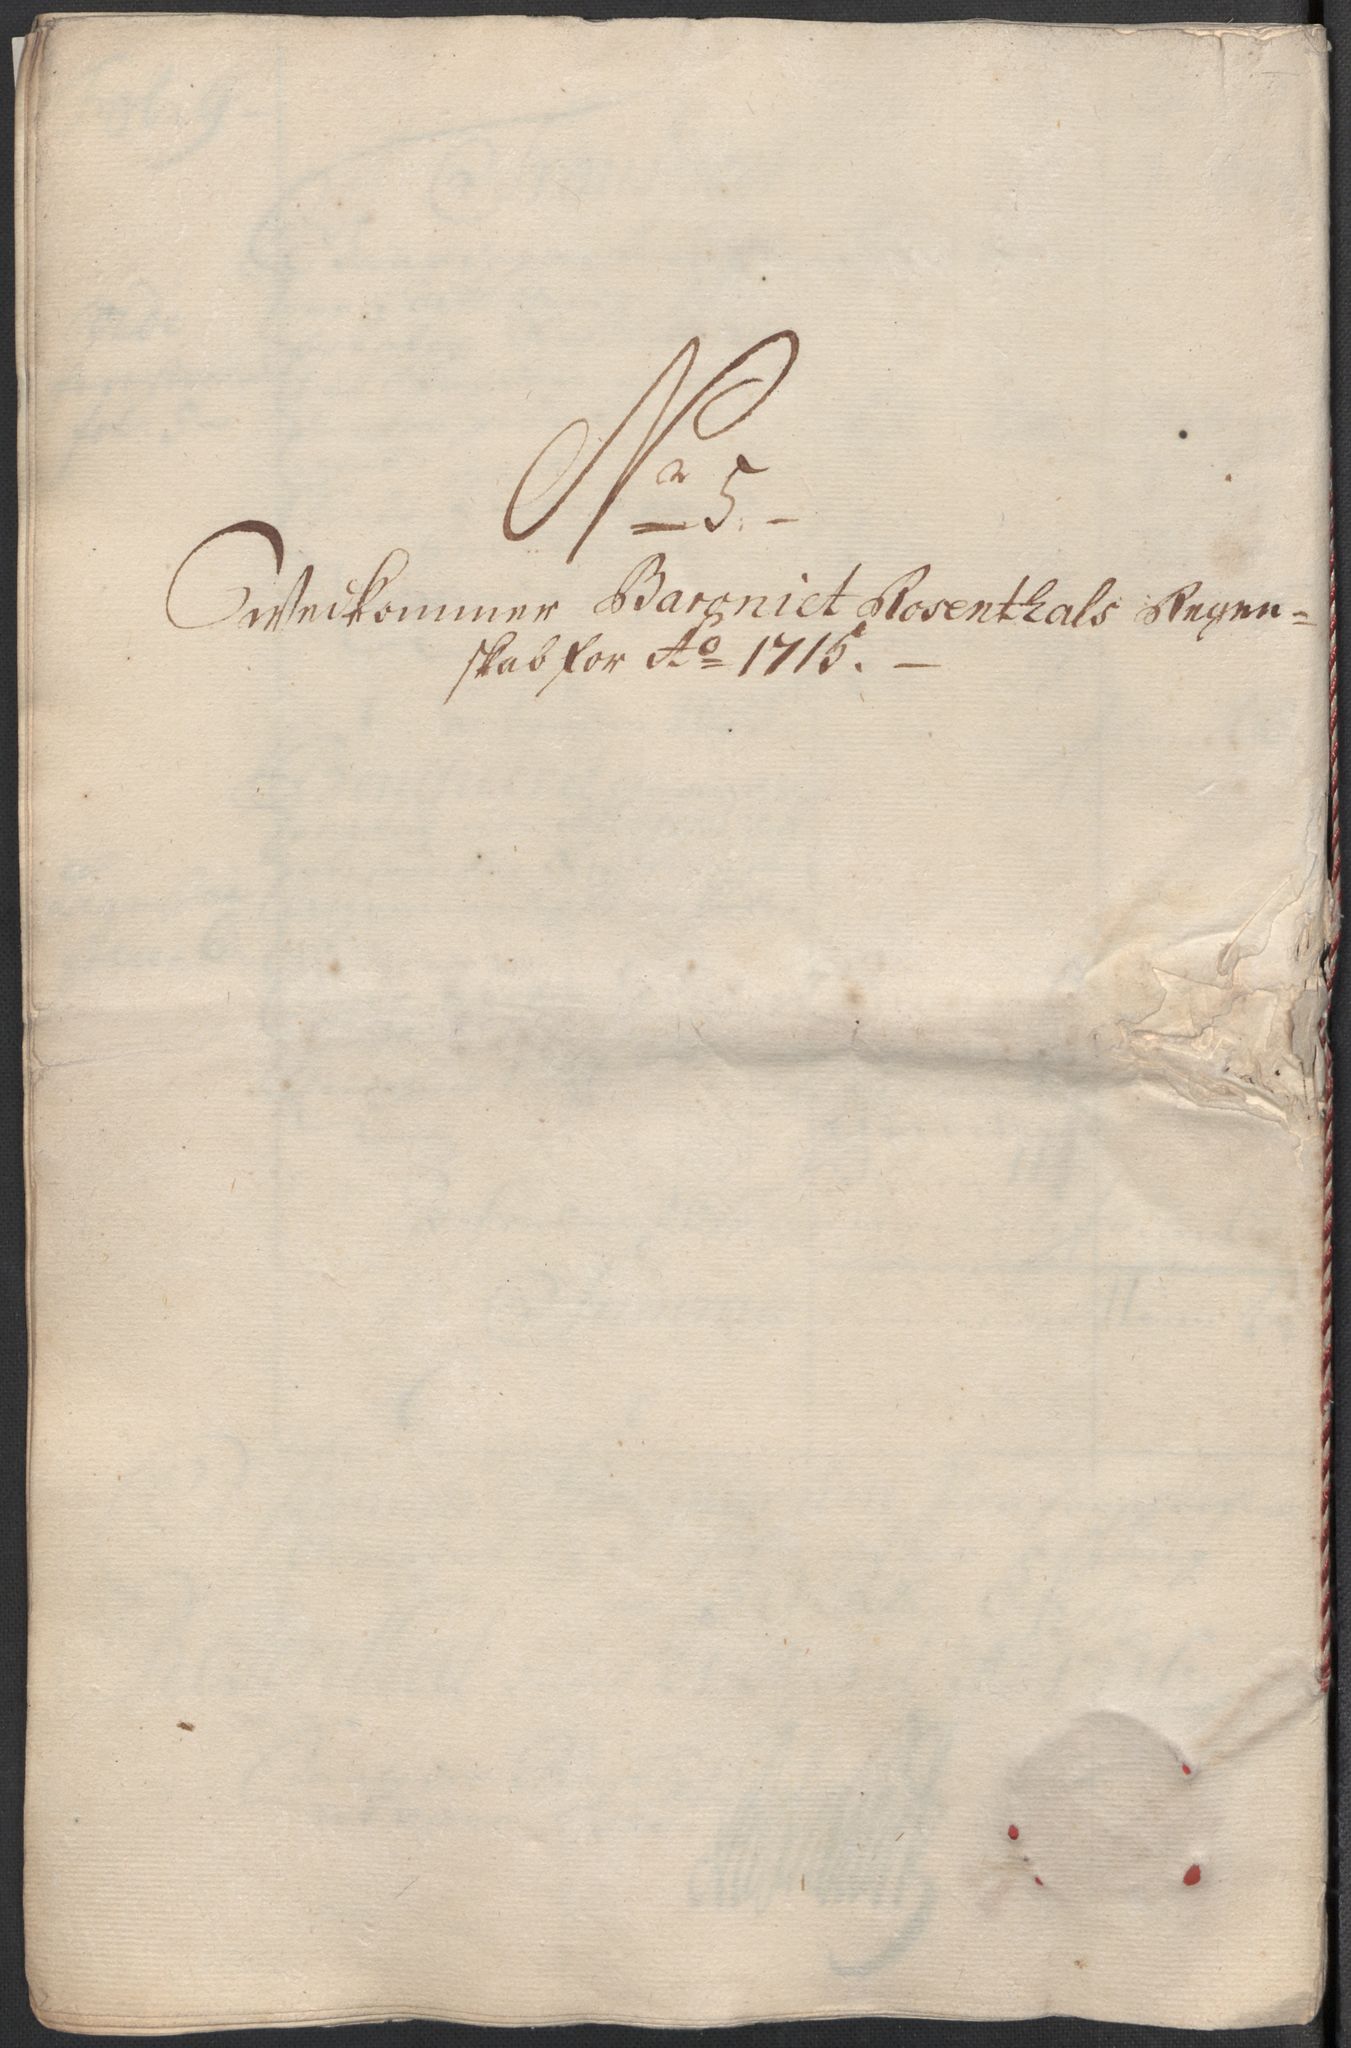 No 5. -
Vedkommer Baroniet Rosenthals Regen=
skab for Ao 1715. -